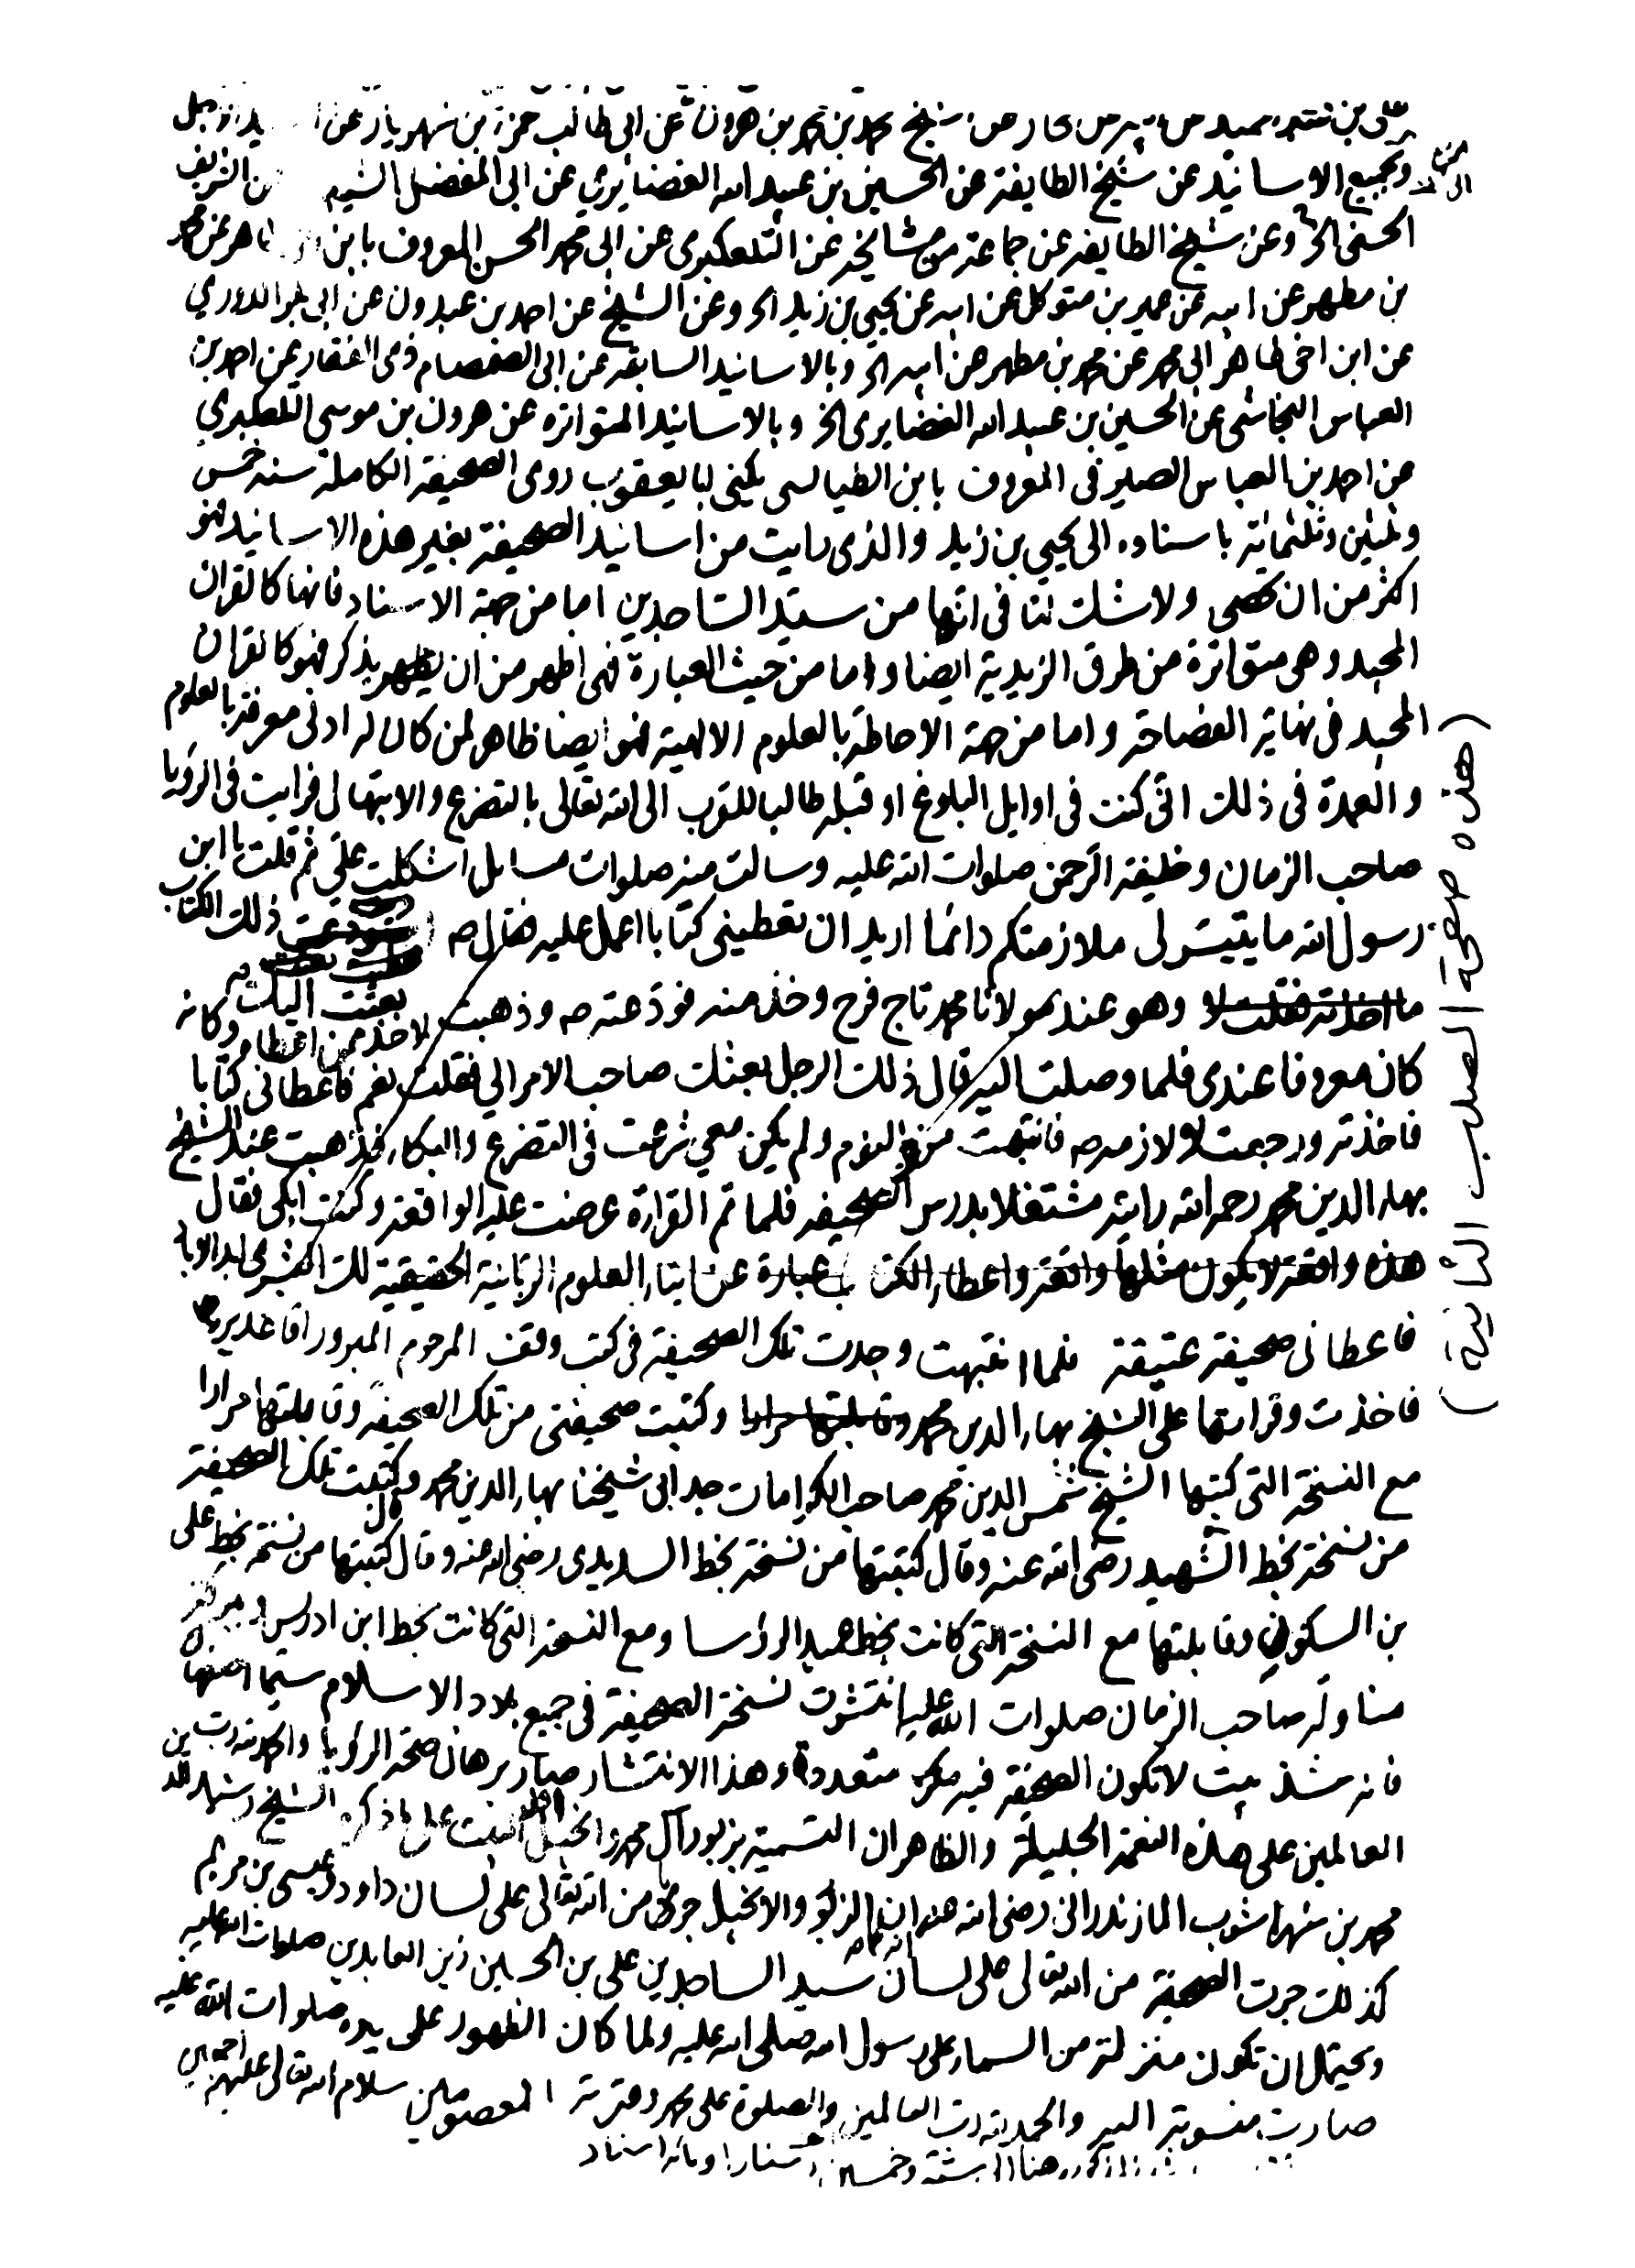 محمد بن محمد بن هرون عن ابى طالب حمزة بن شهريار عن
وبجميع الاسانيد عن شيخ الطايفة عن الحسين بن عبيد الله الغضايري عن ابى المفضل عن الشريف
الحسنى الخ وعن شيخ الطايفه عن جماعة من مشايخه عن التلعكبرى عن ابى محمد الحسن المعروف بابن اخى طاهر عن محمد
بن مطهر عن ابيه عن عمير بن متوكل عن ابيه عن يحيى بن زيد الخ وعن الشيخ عن احمد بن عبدون عن ابى بكر الدوري
عن ابن اخى طاهر ابى محمد عن محمد بن مطهر عن ابيه الخ وبالاسانيد السابقه عن ابى الصمصام ذى الفقار عن احمد بن
العباس النجاشى عن الحسين بن عبيد الله الغضايرى الخ وبالاسانيد المتواتره عن هرون بن موسى التلعكبري
عن احمد بن العباس الصيرفى المعروف بابن الطيالسى يكنى ابا يعقوب روى الصحيفة الكاملة سنه خمس
وثلثين وثلثمائة باسناده الى يحيى بن زيد والذى رايت من اسانيد الصحيفة بغير هذه الاسانيد فهو
اكثر من ان تحصى ولا شك لنا فى انها من سيد الساجدين اما من جهة الاسناد فانها كالقران
المجيد وهى متواترة من طرق الزيدية ايضا واما من حيث العبارة فهى اظهر من ان يذكر فهو كالقران
المجيد فى نهاية الفصاحة واما من جهة الاحاطة بالعلوم الالهية فهو ايضا ظاهر لمن كان له ادنى معرفة بالعلوم
والعمدة فى ذلك انى كنت فى اوايل البلوغ او قبله طالبا للقرب الى الله تعالى بالتضرع والابتهال فرايت فى الرؤيا
صاحب الزمان وخليفة الرحمن صلوات الله عليه وسالت منه صلوات مسايل اشكلت على ثم قلت يا ابن
رسول الله ما يتيسر لى ملازمتكم دائما اريد ان تعطينى كتابا اعمل عليه فقال ص ذلك الكتاب
ما اخذته فقلت لا وهو عند مولانا محمد تاج فرح وخذ منه فودعته ص وذهبت لاخذه بعثت اليك وكانه
كان معروفا عندى فلما وصلت اليه قال ذلك الرجل بعثك صاحب الامر الي فقلت نعم فاعطانى كتابا
فاخذته ورجعت لالازمه ص فانتبهت من النوم ولم يكن معي شرعت فى التضرع والبكاء فذهبت عند الشيخ
بهاء الدين محمد رحمه الله رايته مشتغلا بدرس الصحيفه فلما تم القراءة عرضت عليه الواقعة وكنت ابكى فقال
هذه واقعة لا يكون مثلها واقعة واعطاء الكتاب عبارة عن ايتاء العلوم الربانية الحقيقية لك ابد الاباد
فاعطانى صحيفة عتيقة فلما انتبهت وجدت تلك الصحيفة فى كتب وقف المرحوم المبرور اقا غدير
فاخذت وقراتها على الشيخ بهاء الدين محمد وقابلتها مرارا وكتبت صحيفتى من تلك الصحيفه وقابلتها مرارا
مع النسخة التى كتبها الشيخ شمس الدين محمد صاحب الكرامات جد ابى شيخنا بهاء الدين محمد وكتبت تلك الصحيفة
من نسخة بخط الشهيد رضى الله عنه وقال كتبتها من نسخة بخط السديدى رضى الله عنه وقال كتبتها من نسخة بخط على
بن السكون وقابلتها مع النسخة التى كانت بخط عميد الرؤسا ومع النسخه التى كانت بخط ابن ادريس وببركة
مناولة صاحب الزمان صلوات الله عليه انتشرت نسخة الصحيفة فى جميع بلاد الاسلام سيما اصفهان
فانه شذ بيت لا تكون الصحيفة فيه متعددة وهذا الانتشار صار برهان صحة الرؤيا والحمد لله رب
العالمين على هذه النعمة الجليلة والظاهر ان التسمية بزبور آل محمد وانجيل اهل البيت على ما ذكره الشيخ رشيد الدين
محمد بن شهراشوب المازندرانى رضى الله عنه ان الزبور والانجيل جرى من الله تعالى على لسان داود وعيسى بن مريم
كذلك جرت الصحيفة من الله تعالى على لسان سيد الساجدين على بن الحسين زين العابدين صلوات الله عليه
ويحتمل ان تكون منزلة من السماء على رسول الله صلى الله عليه ولما كان الظهور على يده صلوات الله عليه
صارت منسوبة اليه والحمد لله رب العالمين والصلوة على محمد وعترته المعصومين سلام الله تعالى عليهم اجمعين
هنا الى ستة وخمسين اسنادا ومائة اسناد
(هذه صفحة الصلب الثانية)